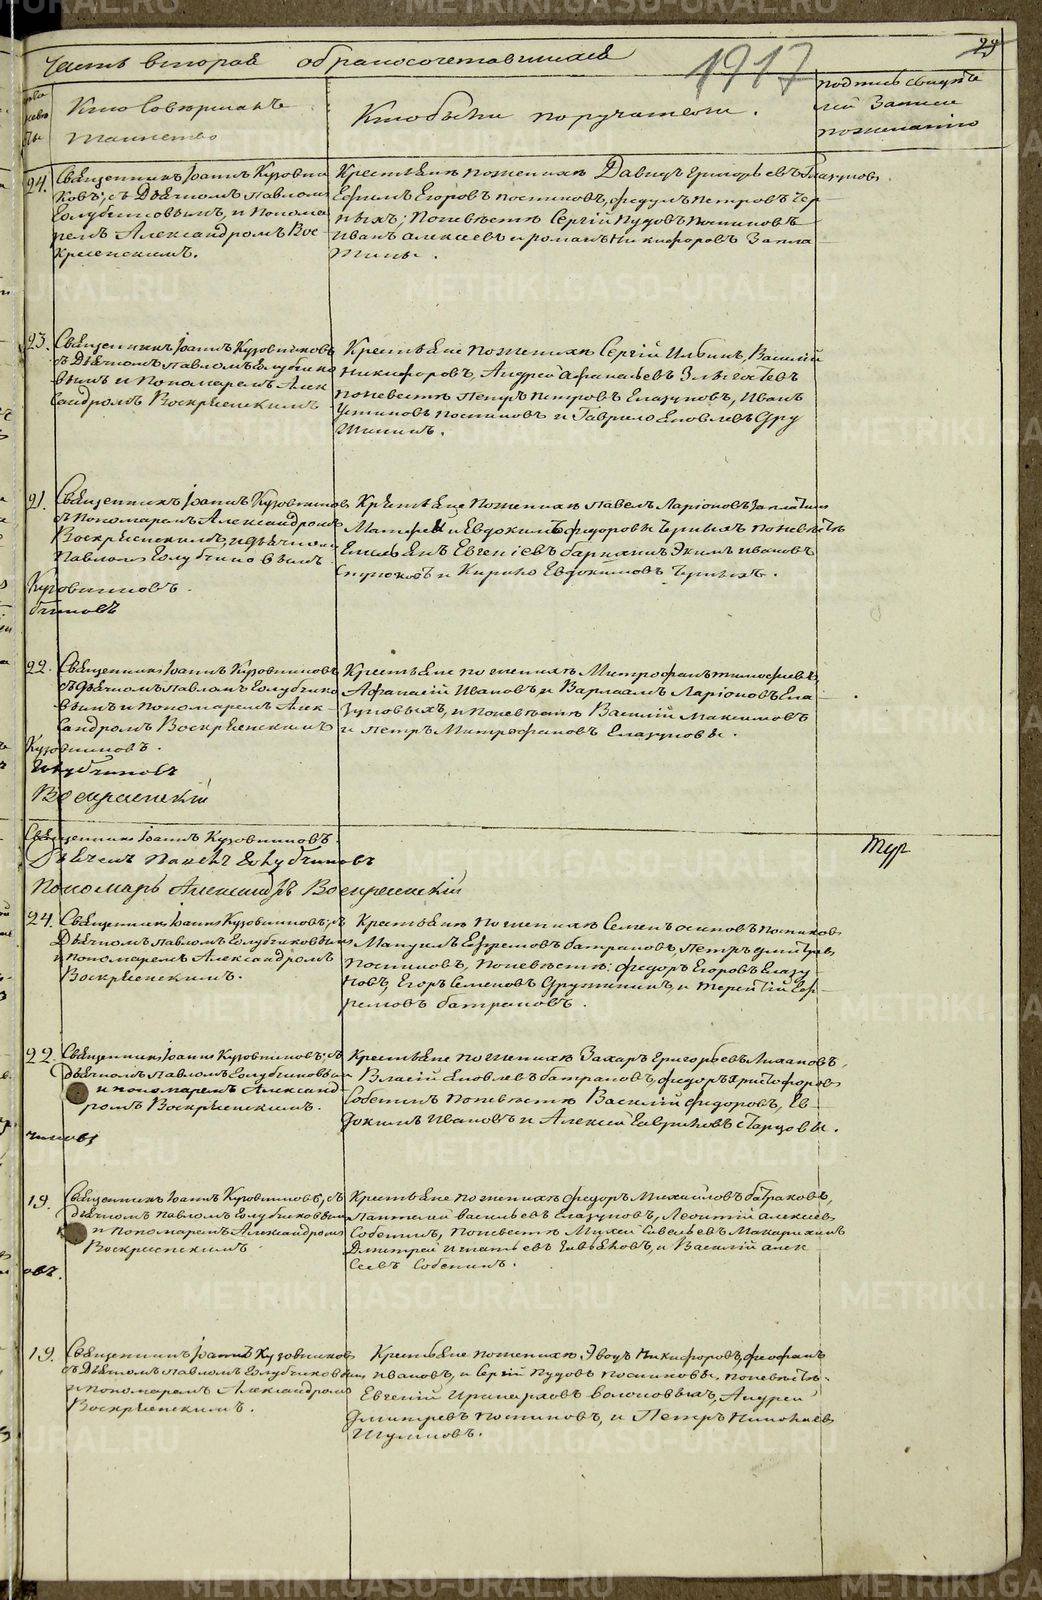 Часть вторая о бракосочетавшихся
1917
29
Кто Совершалъ
таинство
Кто были поручатели.
подпись свидѣте
лей Записи
по желанію
24.
Священникъ Іоаннъ Кузовни
ковъ, съ Дьячкомъ Павломъ
Голубчиковымъ, и Понома
ремъ Александромъ Вос
кресенскимъ.
Крестьяне по женихѣ Давидъ Григорьевъ Глазуновъ
Ефимъ Егоровъ Постниковъ, Федулъ Петровъ Чер
ныхъ; По невѣстѣ Сергій Пудовъ Постниковъ
Иванъ Алексѣевъ и Романъ Никифоровъ Запла
тины.
23.
Священникъ Іоаннъ Кузовниковъ
съ Дьячкомъ Павломъ Голубчико
вымъ и Пономаремъ Алек
сандромъ Воскресенскимъ
Крестьяне По женихѣ Сергій Ильинъ, Василій
Никифоровъ, Андрей Афанасьевъ
По невѣстѣ Петръ Петровъ Глазуновъ, Иванъ
Устиновъ Постниковъ и Гаврило Яковлевъ Дру
жининъ.
21.
Священникъ Іоаннъ Кузовниковъ
съ Пономаремъ Александромъ
Воскресенскимъ, и Дьячкомъ
Павломъ Голубчиковымъ
Крестьяне По женихѣ Павелъ Ларіоновъ Заплатинъ
Матфей и Евдокимъ Федоровы Черныхъ По невѣстѣ
Емельянъ Евгеніевъ Экимъ Ивановъ
и Кирило Евдокимовъ Черныхъ.
Кузовниковъ.
бчиковъ
22.
Священникъ Іоаннъ Кузовниковъ
съ Дьячкомъ Павломъ Голубчико
вымъ и Пономаремъ Алек-
сандромъ Воскресенскимъ
Крестьяне по женихѣ Митрофанъ Тимофѣевъ,
Афанасій Ивановъ и Варлаамъ Ларіоновъ Гла
зуновыхъ, и По невѣстѣ Василій Максимовъ
и Петръ Митрофановъ Глазуновы.
Кузовниковъ.
Голубчиковъ
Воскресенскій
Священникъ Іоаннъ Кузовниковъ.
Дьячекъ Павелъ Голубчиковъ
Пономарь Александръ Воскресенскій
24.
Священникъ Іоаннъ Кузовниковъ, съ
Дьячкомъ Павломъ Голубчиковымъ
и Пономаремъ Александромъ
Воскресенскимъ.
Крестьяне По женихѣ Семенъ Осиповъ Постниковъ
Мануилъ Ефремовъ Батраковъ, Петръ Дмитріев
Постниковъ, По невѣстѣ: Федоръ Егоровъ Глазу
новъ, Егоръ Семеновъ Дружининъ, и Терентій Еф-
ремовъ Батраковъ.
22.
Священникъ Іоаннъ Кузовниковъ, съ
Дьячкомъ Павломъ Голубчиковым
и Пономаремъ Александ-
ромъ Воскресенскимъ.
Крестьяне по женихѣ Захаръ Григорьевъ
Власій Яковлевъ Батраковъ, Федоръ Христофоровъ
Собенинъ По невѣстѣ Василій Федоровъ, Ев-
докимъ Ивановъ и Алексѣй Гавриловъ Старцовы.
чиковъ
19.
Священникъ Іоаннъ Кузовниковъ, съ
Дьячкомъ Павломъ Голубчиковым
и Пономаремъ Александромъ
Воскресенскимъ
Крестьяне По женихѣ Федоръ Михайловъ Батраковъ,
Пантелей Васильевъ Глазуновъ, Леонтій Алексѣев
Собенинъ, По невѣстѣ Михей Савельевъ
Дмитрей Игнатьевъ и Василій Алек
сѣевъ Собенинъ.
овъ.
19.
Священникъ Іоаннъ Кузовниковъ
съ Дьячкомъ Павломъ Голубчиковым
и Пономаремъ Александромъ
Воскресенскимъ.
Крестьяне По женихѣ Никифоровъ, Феофанъ
Ивановъ, и Сергій Пудовъ Постниковы, По невѣстѣ
Евгеній Андрей
Дмитревъ Постниковъ, и Петръ Николаевъ
METRIKI.GASO-URAL.RU